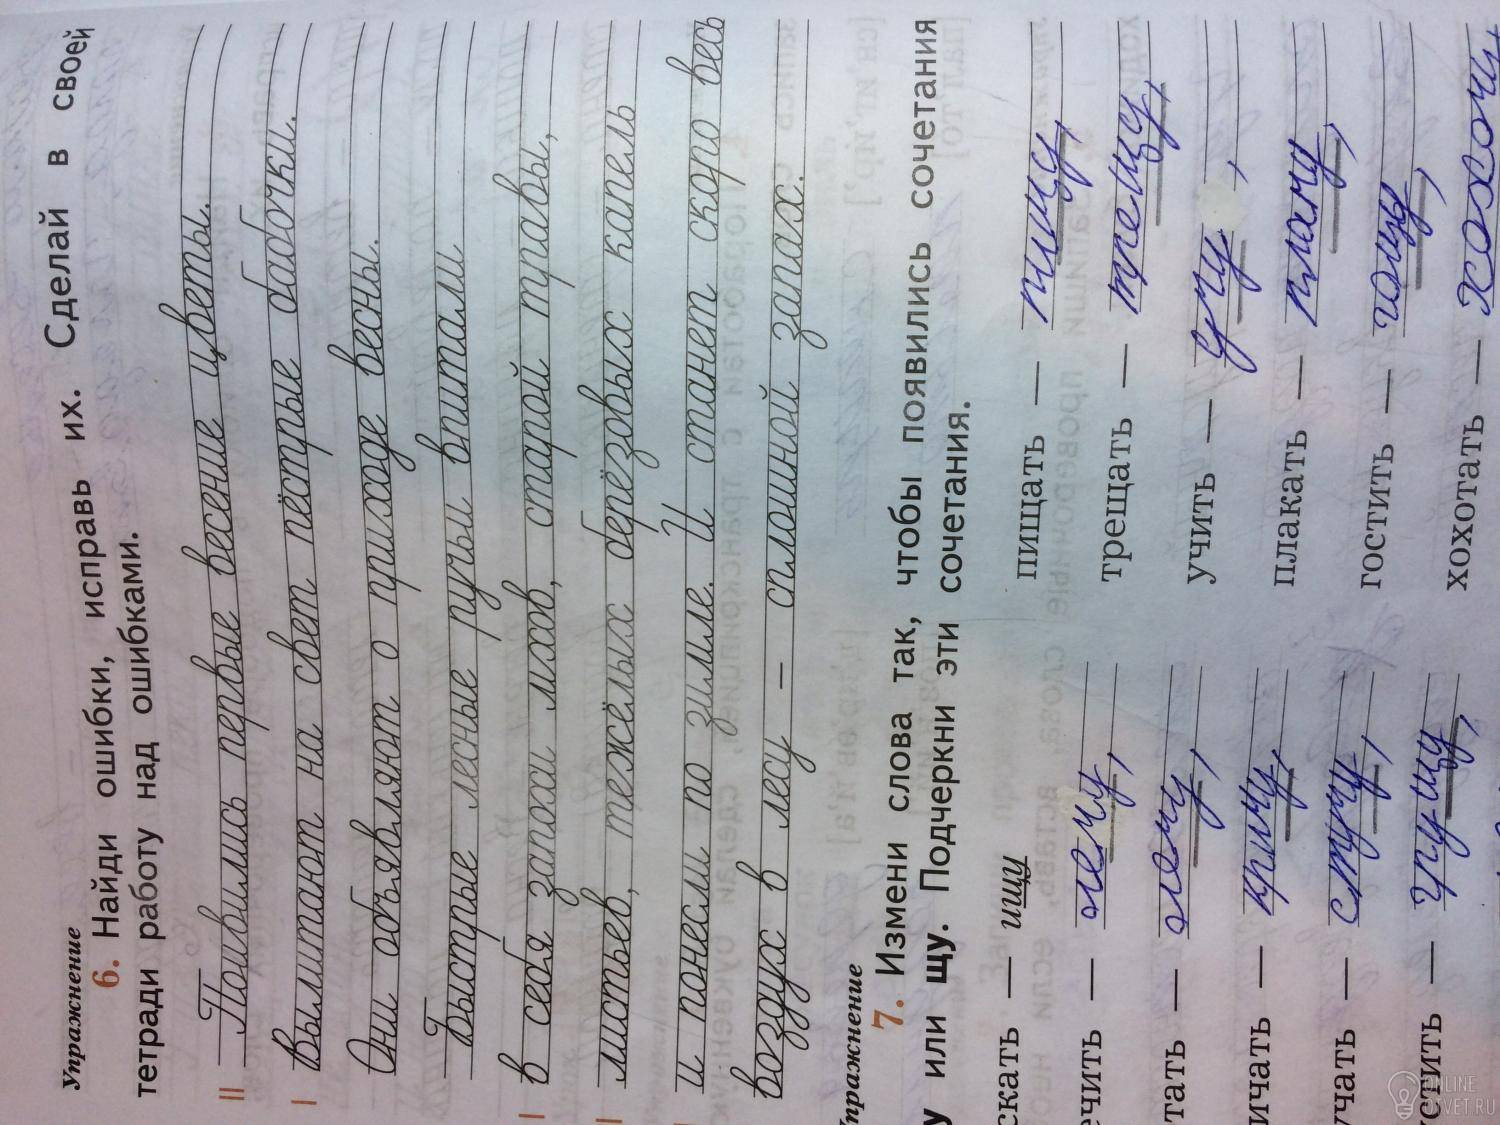 Упражнение
6. Найди ошибки, исправь их. Сделай в своей
тетради работу над ошибками.
II Поивились первые весение цветы.
I Вылитают на свет пёстрые бабочки.
Они объявляют о приходе весны.
Быстрые лесные ручьи впитали
I в себя запохи мхов, старой травы,
I листьев, тежёлых берёзовых капель
и понесли по зимле. И станет скоро весь
воздух в лесу – сплошной запах.
Упражнение
7. Измени слова так, чтобы появились сочетания
у или щу. Подчеркни эти сочетания.
скать — ищу
пищать — пищу,
ечить — лечу,
трещать — трещу,
тать — лечу,
учить — учу,
ичать — кричу,
плакать — плачу,
учать — стучу,
гостить — гощу,
устить — грущу,
хохотать — хохочу,
ONLINE
OTVET.RU